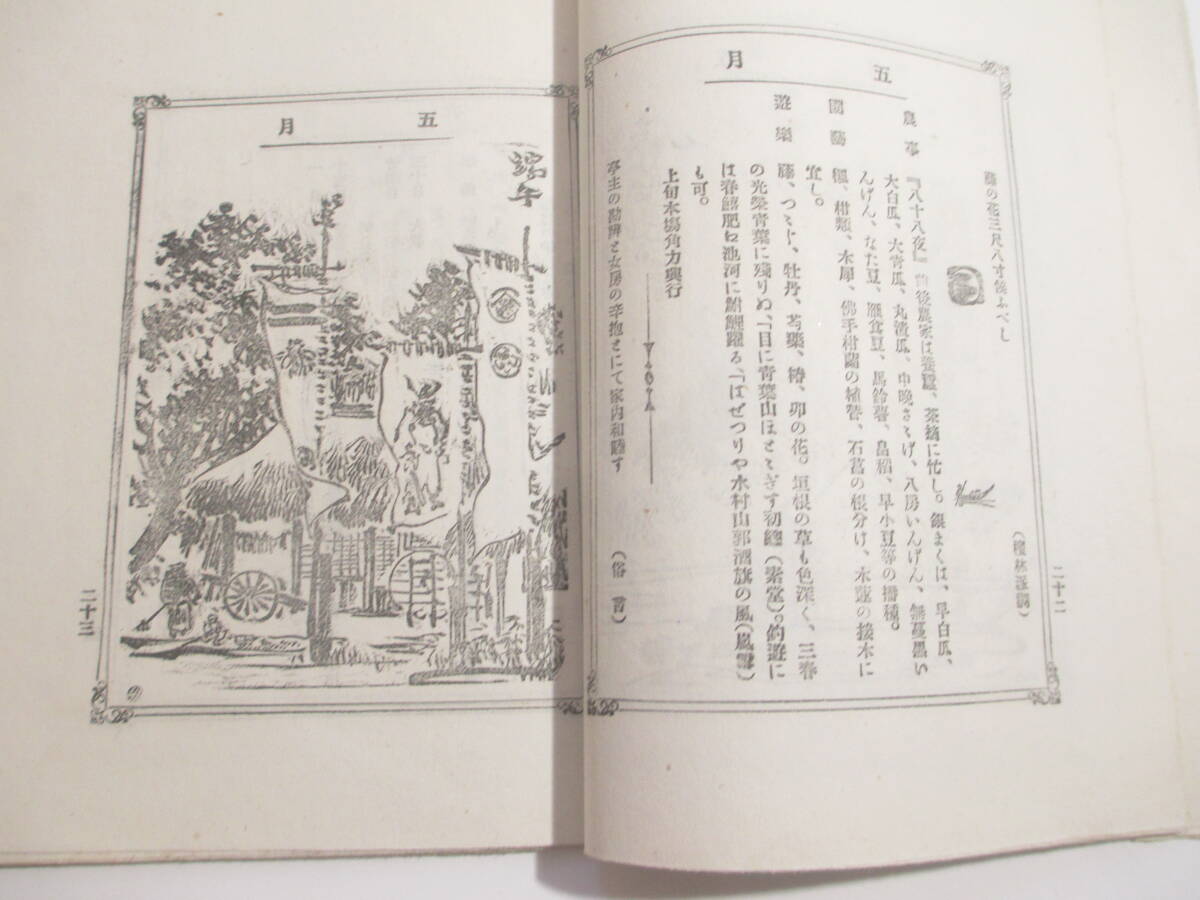 五月
藤の花三尺八寸餘ふべし
農事
『八十八夜』前後農家は養蠶、茶摘に忙し。銀まくは、早白瓜、
大白瓜、大青瓜、丸漬瓜、中晩さゝげ、八房いんげん、無蔓黒い
んげん、なた豆、雁食豆、馬鈴薯、畠稻、早小豆等の播種。
園藝
楓、柑類、木犀、佛手柑蘭の植替、石菖の根分け、木瓜の接木に
宜し。
遊樂
藤、つゝじ、牡丹、芍藥、椿、卯の花。垣根の草も色深く、三春
の光榮青葉に殘りぬ、「目に青葉山ほとゝぎす初鰹(素堂)。釣遊に
は春鮒肥え池河に鮒鯉躍る、「はぜつりや水村山郭酒旗の風(嵐雪)
も可。
上旬本場角力興行
亭主の勘辨と女房の辛抱とにて家内和睦す
(俗言)
二十二
五月
端午
二十三